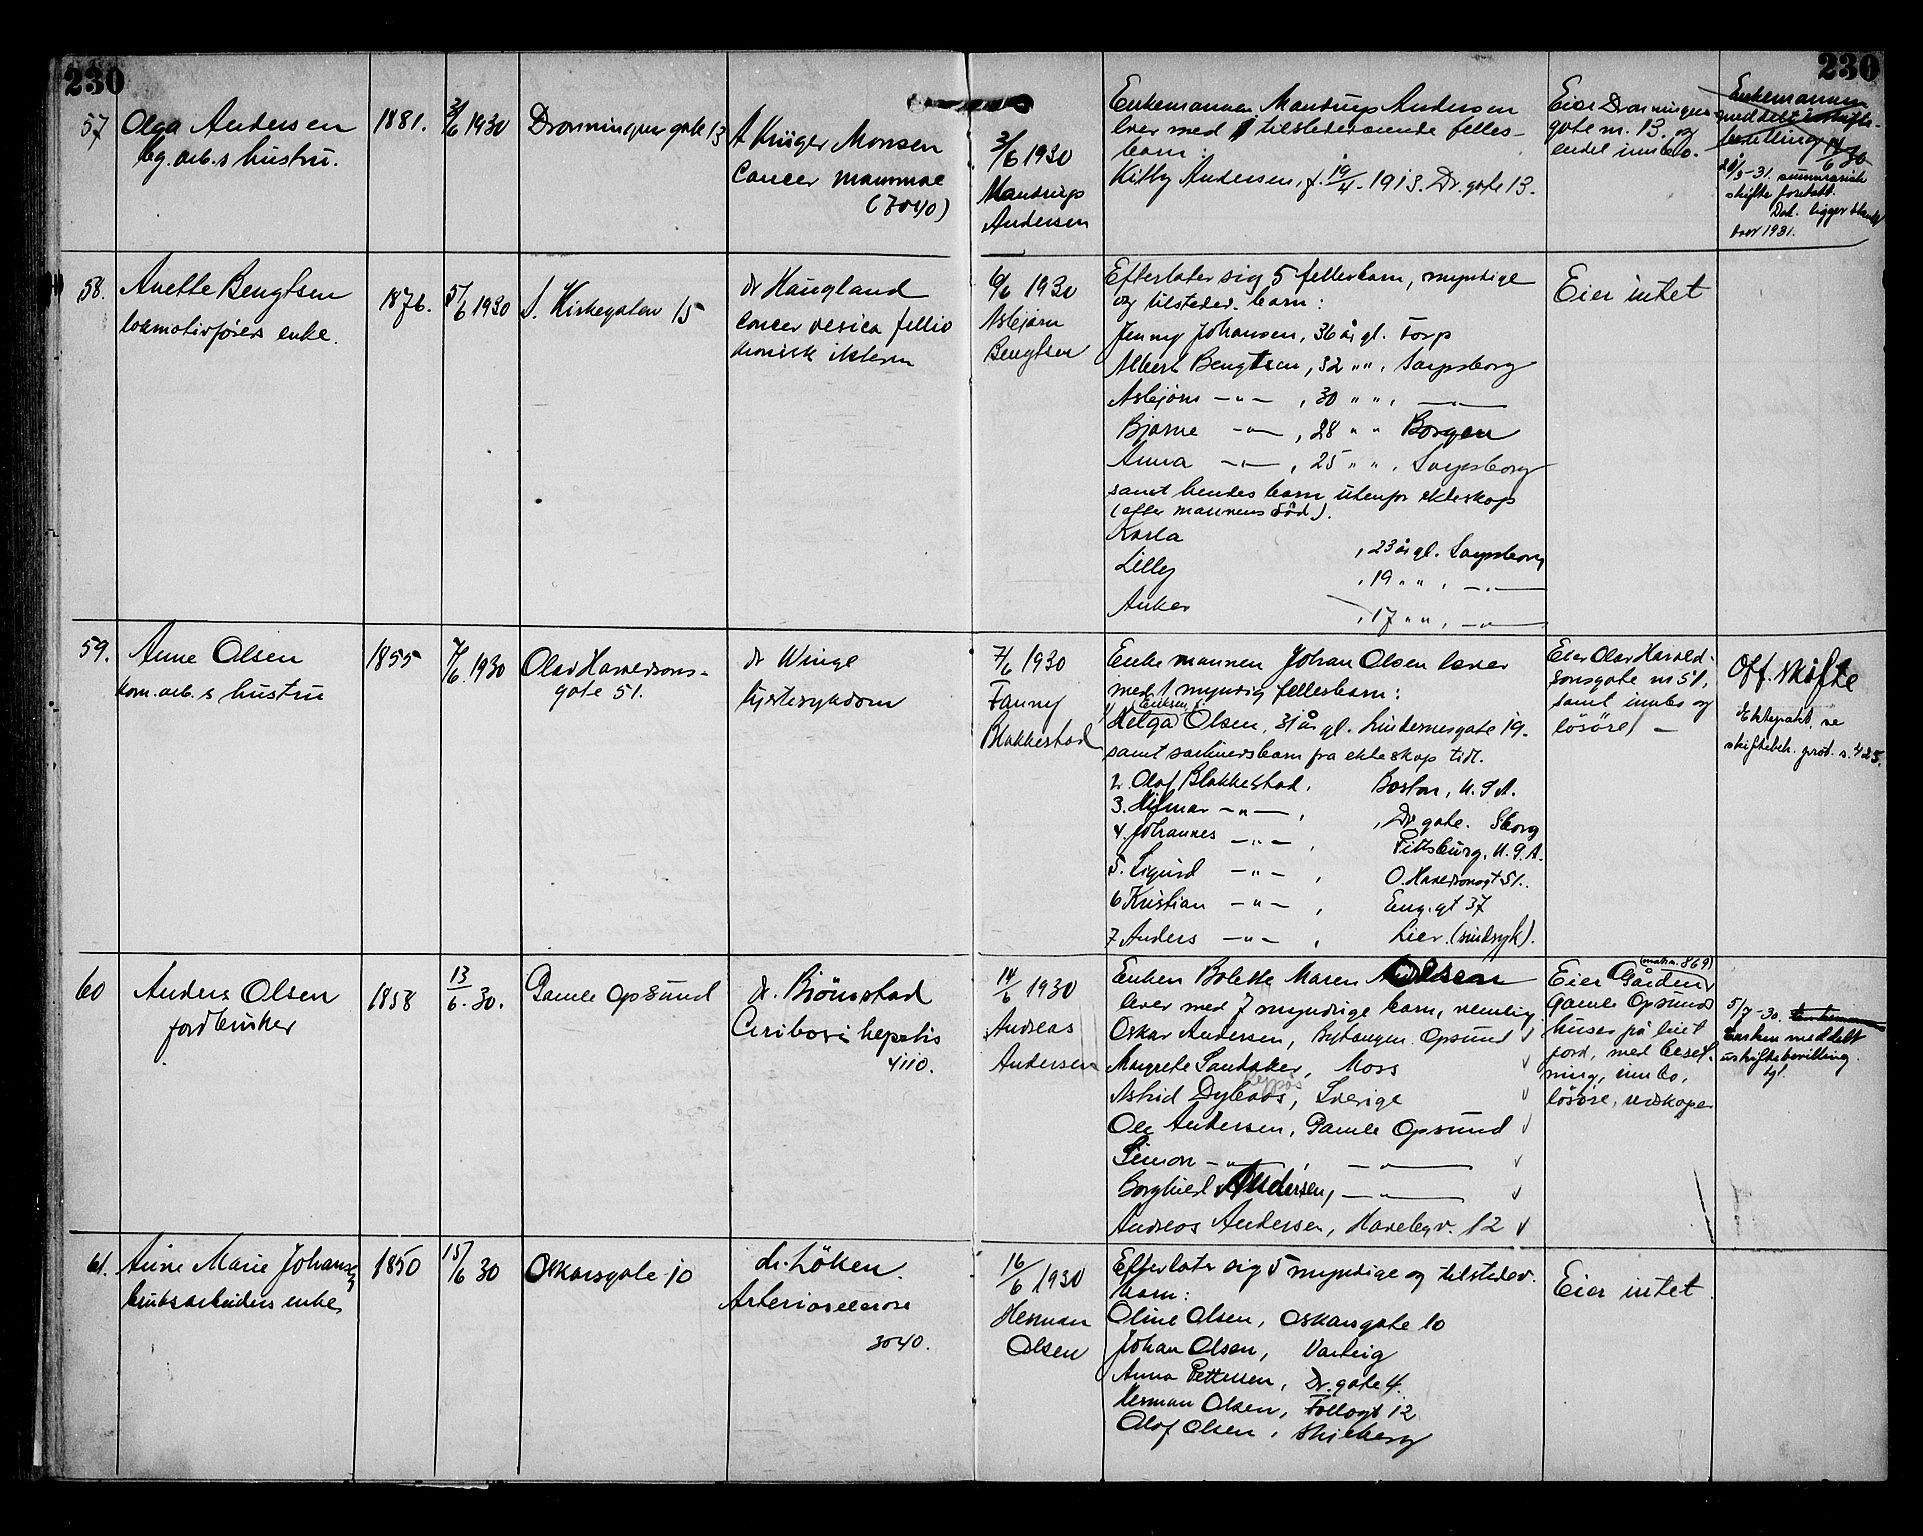 230
230
57
Olga Andersen
bg. arb.s hustru.
1881.
3/6 1930
Dronningens gate 13
A Krüger Monsen
Cancer mammae
(7040)
3/6 1930
Mandrup
Andersen
Enkemannen Mandrup Andersen
lever med 1 tilstedeværende felles-
barn:
Kitty Andersen, f. 19/4. 1913. Dr. gate 13.
Eier Dronningens
gate nr. 13. og
endel innbo.
Enkemannen
meddelt uskifte-
bevilling 14/6 30
summarisk
skifte foretatt.
Dok. ligger
1931.
58.
Anette Bengtsen
lokomotivførers enke.
1876.
5/6 1930
S. Kirkegaten 15
dr Haugland
Cancer vesica fellio
kronisk ikterus
6/6 1930
Asbjørn
Bengtsen
Efterlater sig 5 fellesbarn, myndige
og tilstedev. barn:
Jenny Johansen, 36 år gl. Torp
Albert Bengtsen, 32 " ", Sarpsborg
Asbjørn — " — , 30 " ", — " —
Bjarne — " — , 28 " " Borgen
Anna — " — , 25 " ", Sarpsborg
samt hendes barn utenfor ekteskap
(efter mannens død).
Karla , 23 år gl. Sarpsborg
Lilly , 19 " " , — " —
Anker , 17 " " , — " —
59.
Anne Olsen
kom. arb. s hustru
1855
7/6 1930
Olav Haraldsons-
gate 51.
dr Winge
hjertesykdom
7/6 1930
Fanny
Blakkestad
Enkemannen Johan Olsen lever
med 1 myndig fellesbarn:
1/ Helga Olsen, 31 år gl. Lindemesgate 19.
samt særkuldsbarn fra ekteskap tidl.
2. Olaf Blakkestad, Boston, U.S.A.
3. Hilmar — " — , Dr gate. Sborg
4. Johannes — " — , Pittsburg, U.S.A.
5. Sigurd — " — , O. Haraldsonsgt 51.
6 Kristian — " — , Eng. gt 37
7 Anders — " — , Lier. (sindsyk).
Eier Olav Harald-
sonsgate nr 51,
samt innbo og
løsøre, —
Off. skifte
Ektepakt, se
skiftebeh. prot. s. 425.
60
Anders Olsen
jordbruker
1858
13/6. 30.
Gamle Opsund
dr. Bjørnstad
Ciribosis hepatis
4110.
14/6 1930
Andreas
Andersen
Enken Bolette Maren Olsen
lever med 7 myndige barn, nemlig
Oskar Andersen, Byhaugen Opsund √
Margrete Sandaker, Moss √
Astrid Dybaas, Sverige √
Ole Andersen, Gamle Opsund √
Simon — " — , — " — √
Borghild Andersen, — " — √
Andreas Andersen, Havebyv. 12 √
(matrn. 869)
Eier Gården
Gamle Opsund
huser på leiet
jord, med beset-
ning, innbo,
løsøre, redskaper
5/7 -30.
Enken meddelt
uskiftebevilling.
tgl.
61.
Anne Marie Johansen
bruksarbeiders enke
1850
15/6 30
Oskarsgate 10
dr. Løken.
Arteriosclerose
3040.
16/6 1930
Herman
Olsen
Efterlater sig 5 myndige og tilstedev.
barn:
Oline Olsen, Oskarsgate 10
Johan Olsen, Varteig
Anna Pettersen, Dr. gate 4.
Herman Olsen, Follogt 12
Olaf Olsen, Skjeberg
Eier intet
Eier intet.